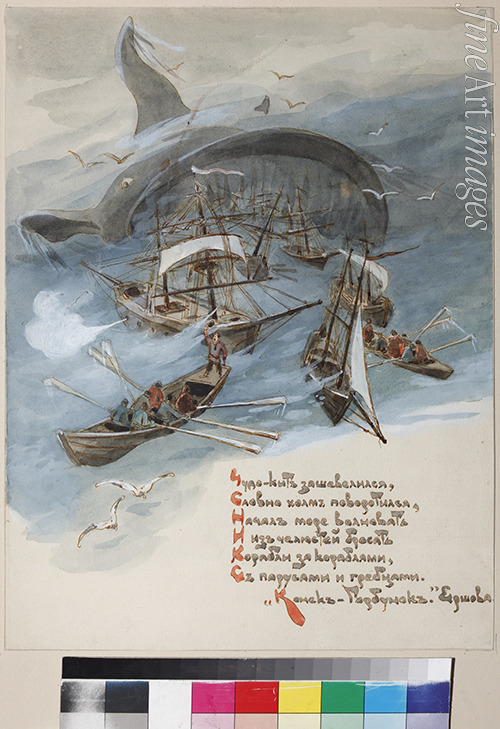 fine Art images
Чудо-китъ зашевелился,
Словно холмъ поворотился,
Началъ море волновать
И изъ челюстей бросать
Корабли за кораблями,
Съ парусами и гребцами.
"Конекъ-Горбунокъ." Ершова